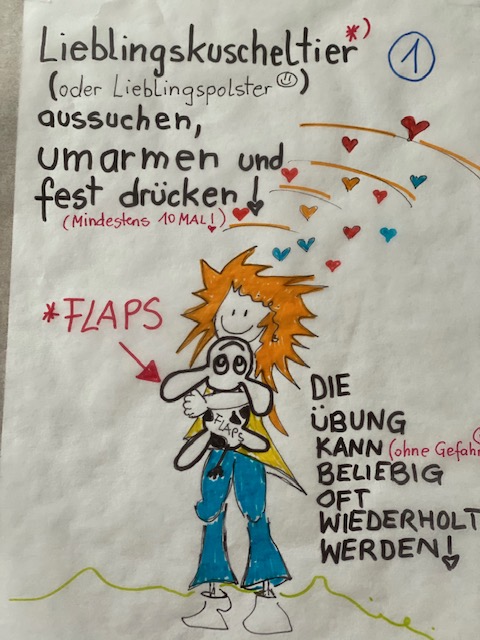 Lieblingskuscheltier*)
1
(oder Lieblingspolster☺)
aussuchen,
umarmen und
fest drücken!
(Mindestens 10 MAL!)
*FLAPS
FLAPS
DIE
ÜBUNG
KANN (ohne Gefahr
BELIEBIG
OFT
WIEDERHOLT
WERDEN!